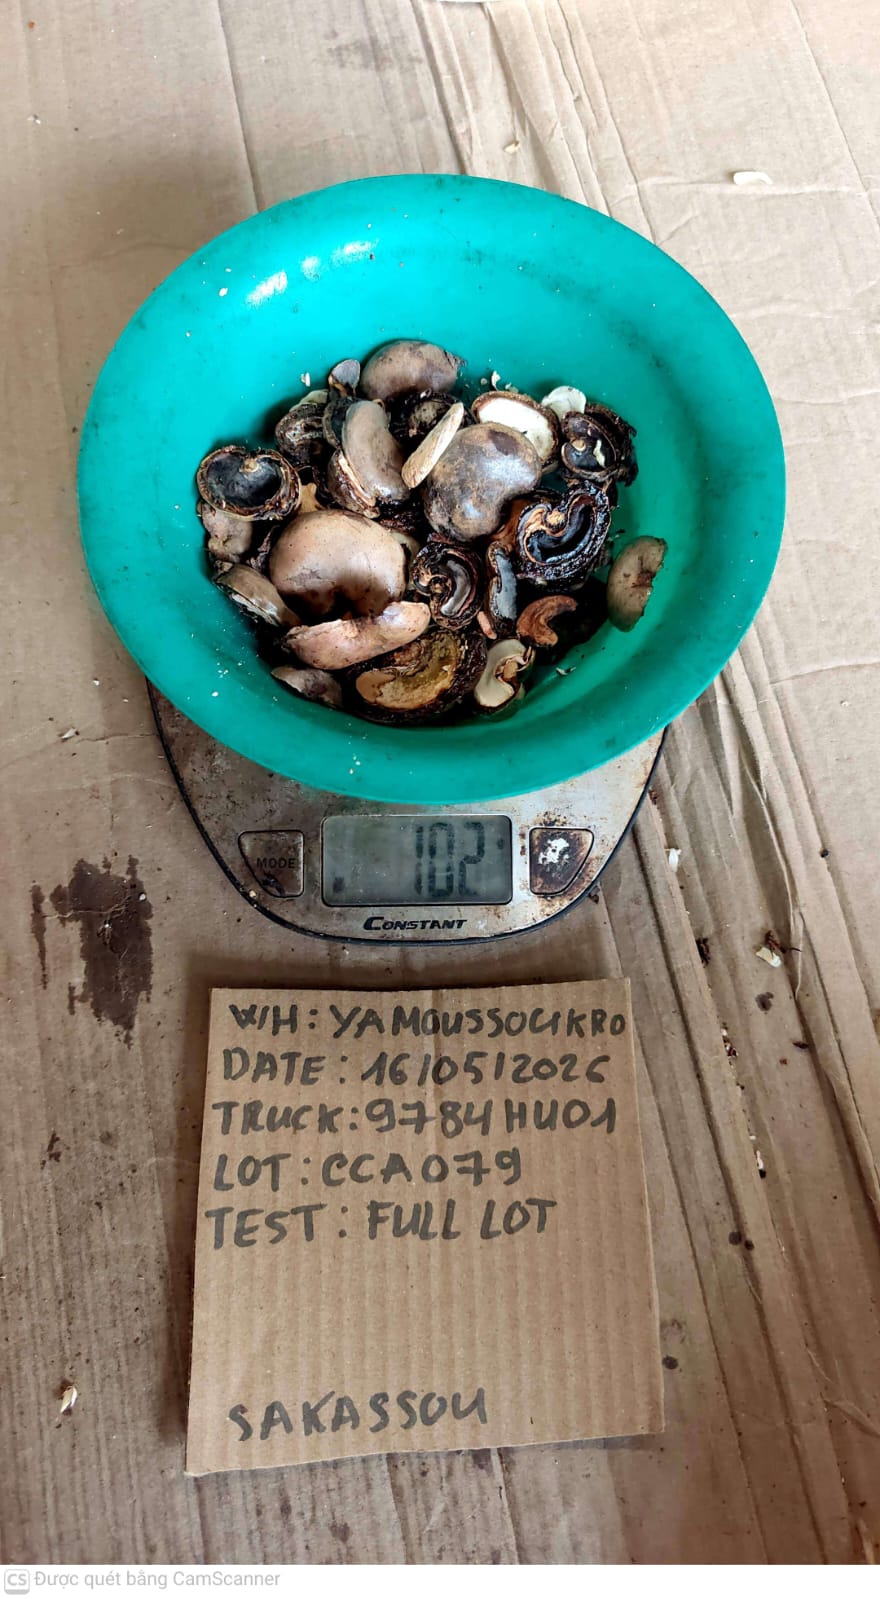 102
MODE
CONSTANT
W/H: YAMOUSSOUKRO
DATE: 16/05/2026
TRUCK: 9784HU01
LOT: CCA079
TEST: FULL LOT
SAKASSOU
CS Được quét bằng CamScanner